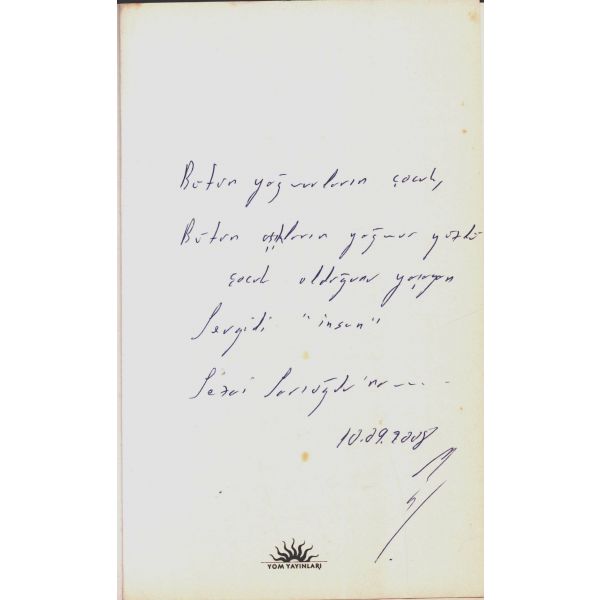 Bütün yağmurların çocuk,
Bütün aşkların yağmur yüzlü
çocuk olduğunu yaşayan
Sevgili "insan"
Sezai Sarıoğlu'na......
10.09.2008
YOM YAYINLARI